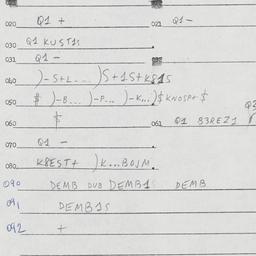 020 Q1 + 021 Q1 -
030 Q1 KUST1S
031 Q1 -
040 )-S+L... )S+1S+K81S
050 $ )-B... )-P... )-K...)$KNOSP+$
060 $ 061 Q1 83REZ1
070 Q1 -
080 K8EST+ )K...BOJM.
090 DEMB DUB DEMB1 DEMB
091 DEMB1S
092 +